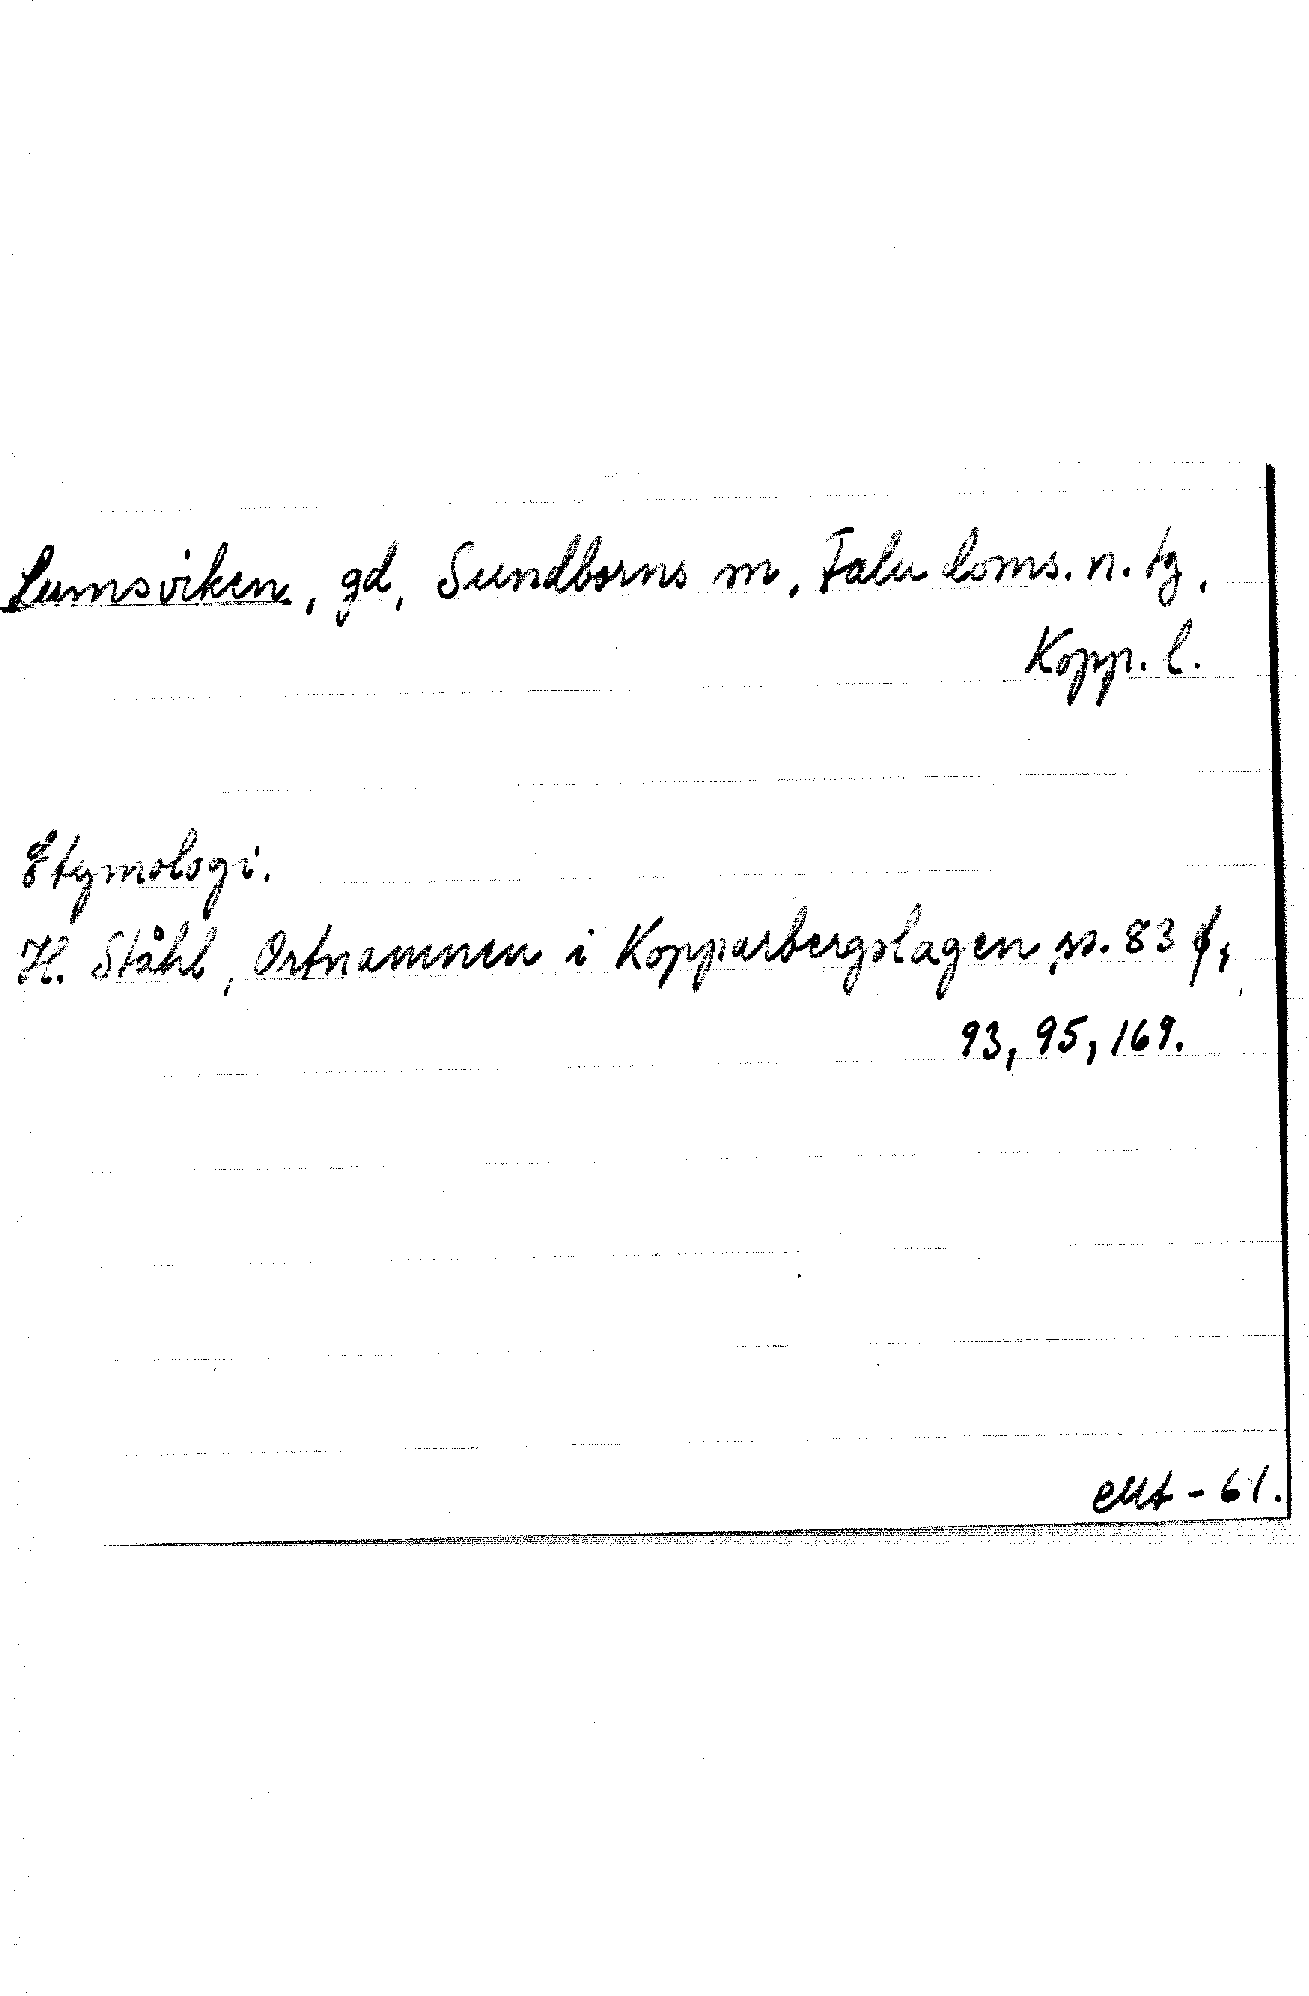 Lumsviken, gd, Sundborns sn, Falu doms. n. tg,
Kopp. l.
Etymologi.
H. Ståhl, Ortnamnen i Kopparbergslagen ss. 83 f,
93, 95, 169.
- 61.